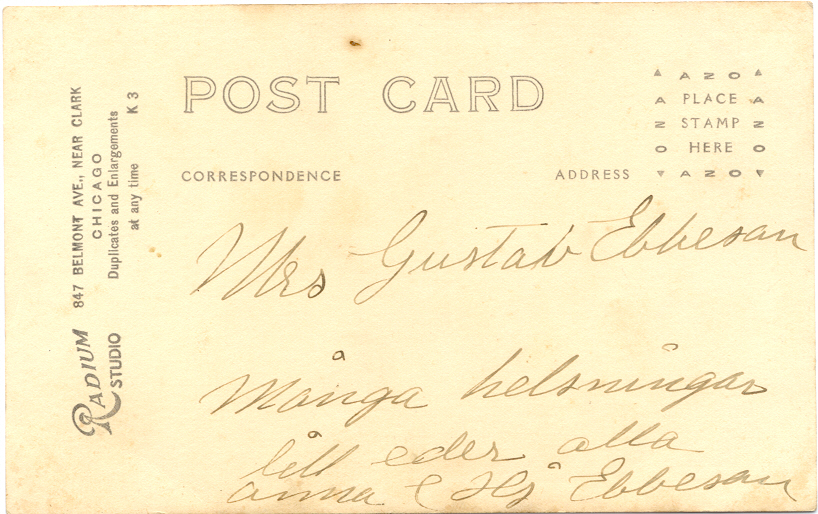 RADIUM STUDIO
847 BELMONT AVE., NEAR CLARK
CHICAGO
Duplicates and Enlargements
at any time K 3
POST CARD
CORRESPONDENCE
ADDRESS
AZO
PLACE
STAMP
HERE
AZO
AZO
AZO
Mrs Gustav Ebbesan
Många helsningar
till eder alla
anna Ebbesan